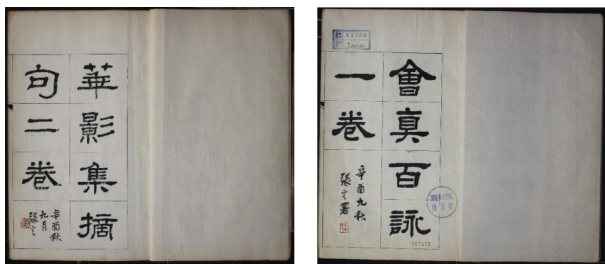 華影集摘
句二卷
辛酉秋
九月
張之
會真百詠
一卷
辛酉九秋
張之署